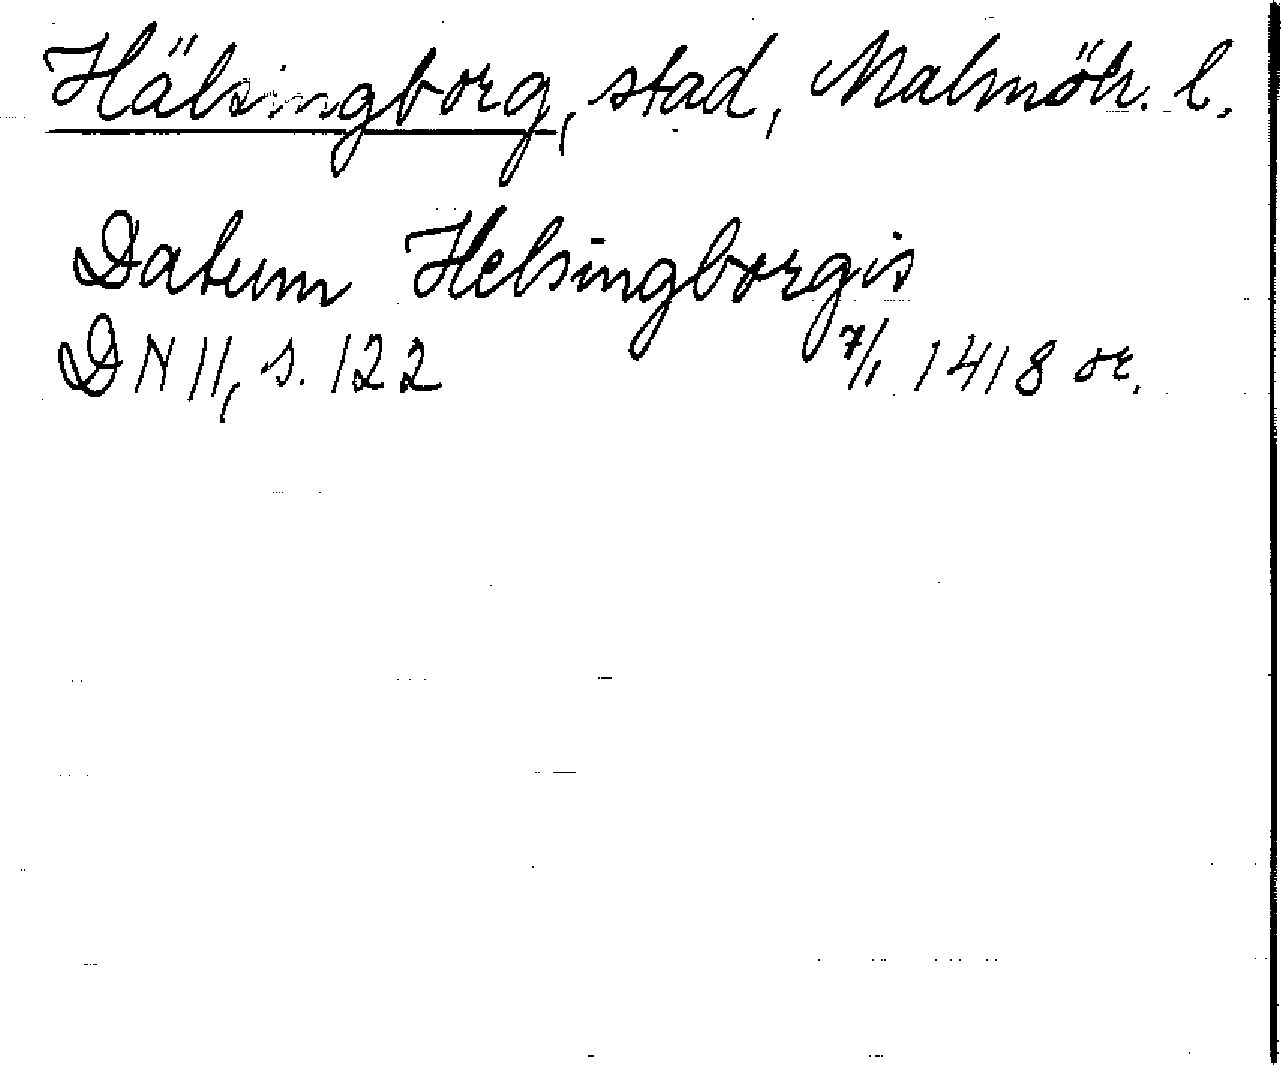 Hälsingborg, stad, Malmöh. l.
Datum Helsingborgis
DN 11, s. 122 7/1 1418 or.